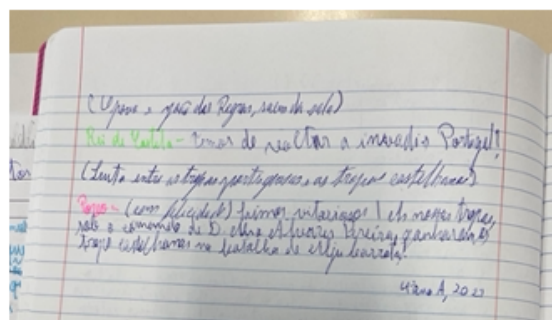 (O povo e João das Regras, saem da sala)
Rei de Castela - Temos de voltar a invadir Portugal!
(Luta entre as tropas portuguesas e as tropas castelhanas)
Povo - (com felicidade) Fomos vitoriosos! As nossas tropas,
sob o comando de D. Nuno Álvares Pereira, ganharam às
tropas castelhanas na batalha de Aljubarrota!
4º ano A, 20 22